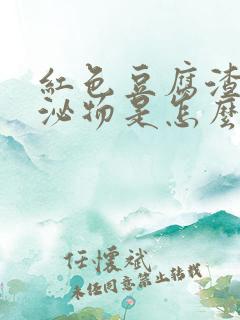 紅色豆腐渣
泌物是怎麼
任懷斌
未經同意禁止轉載